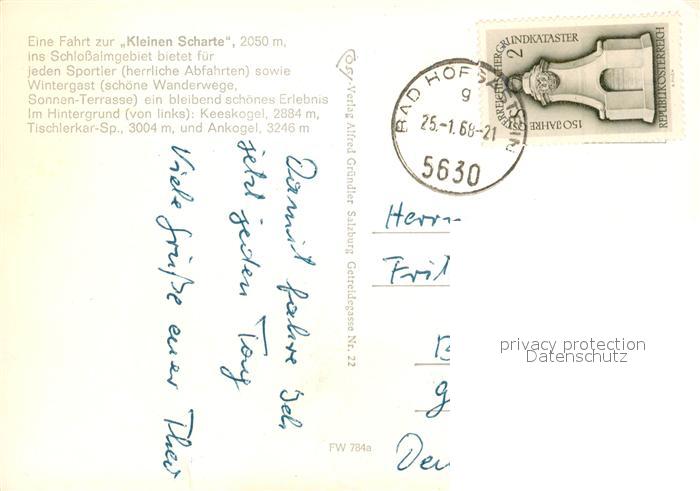 Eine Fahrt zur „Kleinen Scharte“, 2050 m,
ins Schloßalmgebiet bietet für
jeden Sportler (herrliche Abfahrten) sowie
Wintergast (schöne Wanderwege,
Sonnen-Terrasse) ein bleibend schönes Erlebnis
Im Hintergrund (von links): Keeskogel, 2884 m,
Tischlerkar-Sp., 3004 m, und Ankogel, 3246 m
Damit fahre Ich
jetzt jeden Tag
Viele Grüße euer Theo
Verlag Alfred Gründler Salzburg Getreidegasse Nr. 22
FW 784a
BAD HOFGASTEIN
g
25.-1.68-21
5630
2
150 JAHRE ÖSTERREICHISCHER GRUNDKATASTER
REPUBLIK ÖSTERREICH
Herrn
Frit
B
g
Deu
privacy protection
Datenschutz